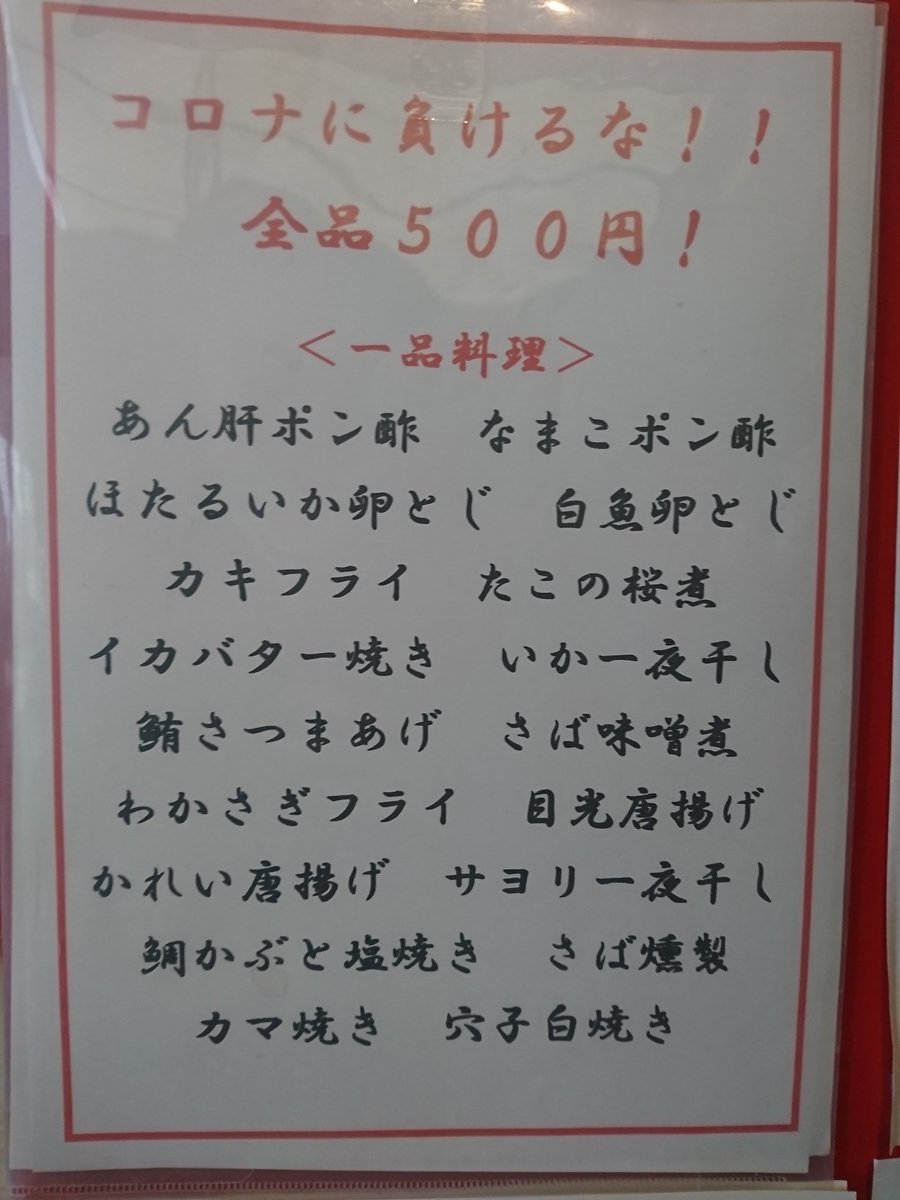 コロナに負けるな！！
全品５００円！
＜一品料理＞
あん肝ポン酢　なまこポン酢
ほたるいか卵とじ　白魚卵とじ
カキフライ　たこの桜煮
イカバター焼き　いか一夜干し
鮪さつまあげ　さば味噌煮
わかさぎフライ　目光唐揚げ
かれい唐揚げ　サヨリ一夜干し
鯛かぶと塩焼き　さば燻製
カマ焼き　穴子白焼き